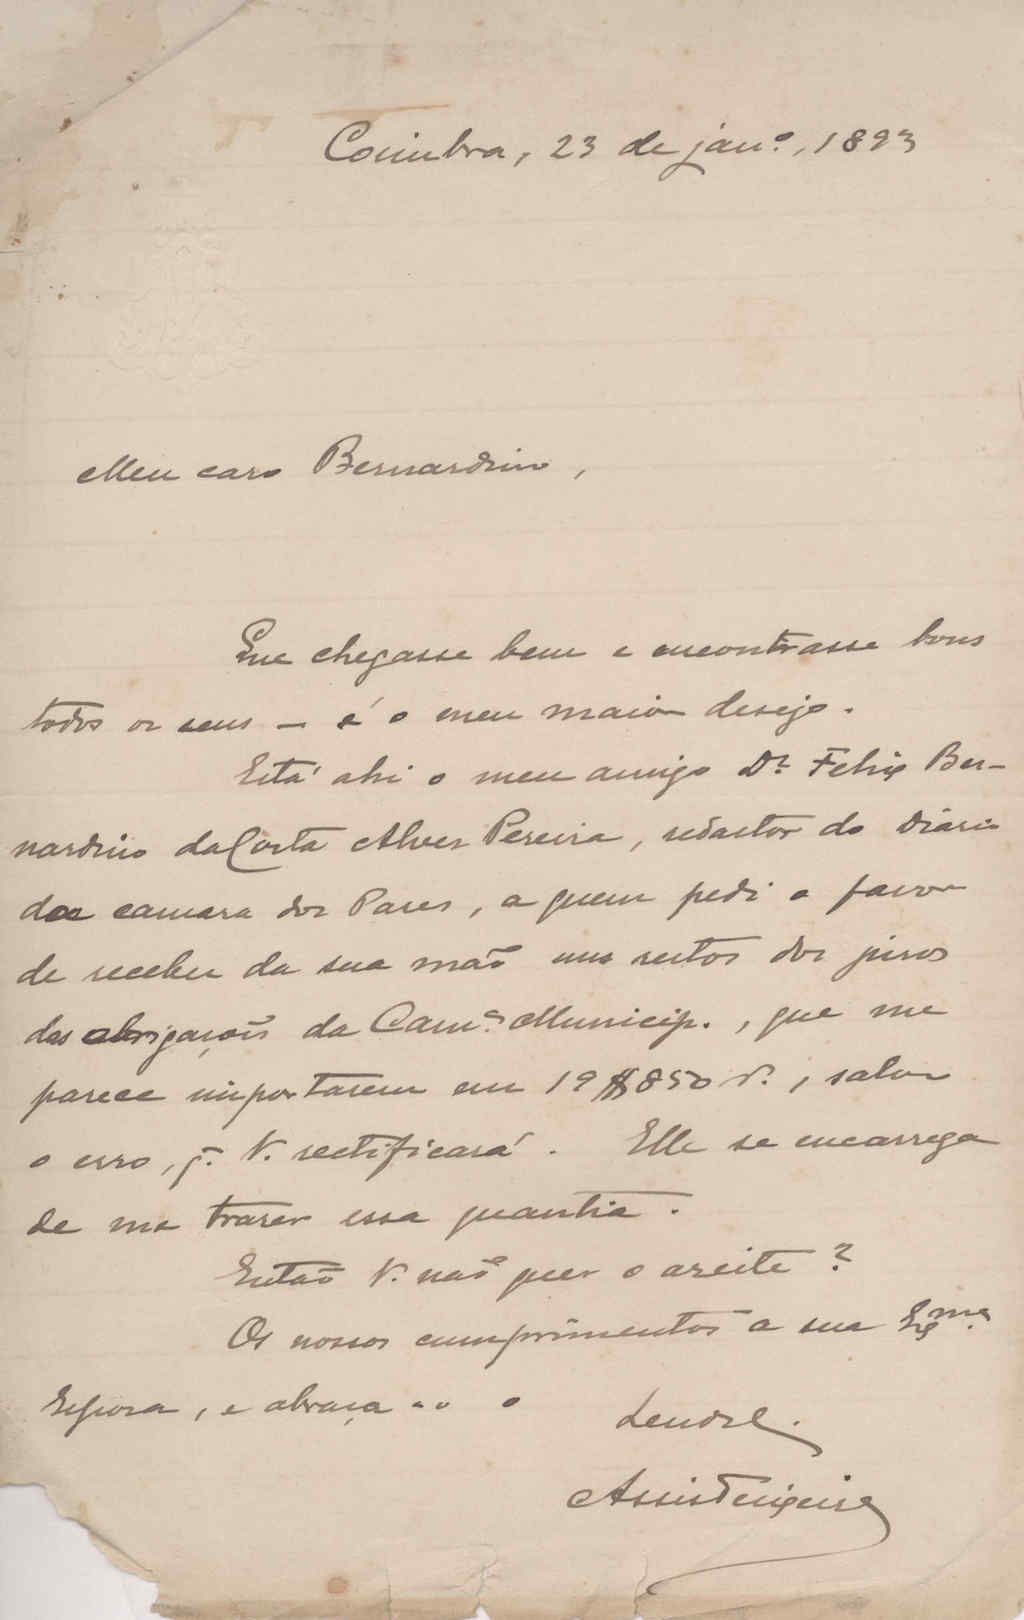 Coimbra, 23 de jan.º, 1893
Meu caro Bernardino,
Que chegasse bem e encontrasse bons
todos os seus — é o meu maior desejo.
Está ahi o meu amigo Dr. Felix Ber-
nardino da Costa Alves Pereira, redactor do Diario
da camara dos Pares, a quem pedi o favor
de receber da sua mão uns restos dos juros
das obrigações da Cam.ª Municip., que me
parece importarem em 19$850 r., salvo
o erro, q. V. rectificará. Elle se encarrega
de me trazer essa quantia.
Então V. não quer o azeite?
Os nossos cumprimentos a sua Ex.ma
Esposa, e abraça-o o
Assis Teixeira